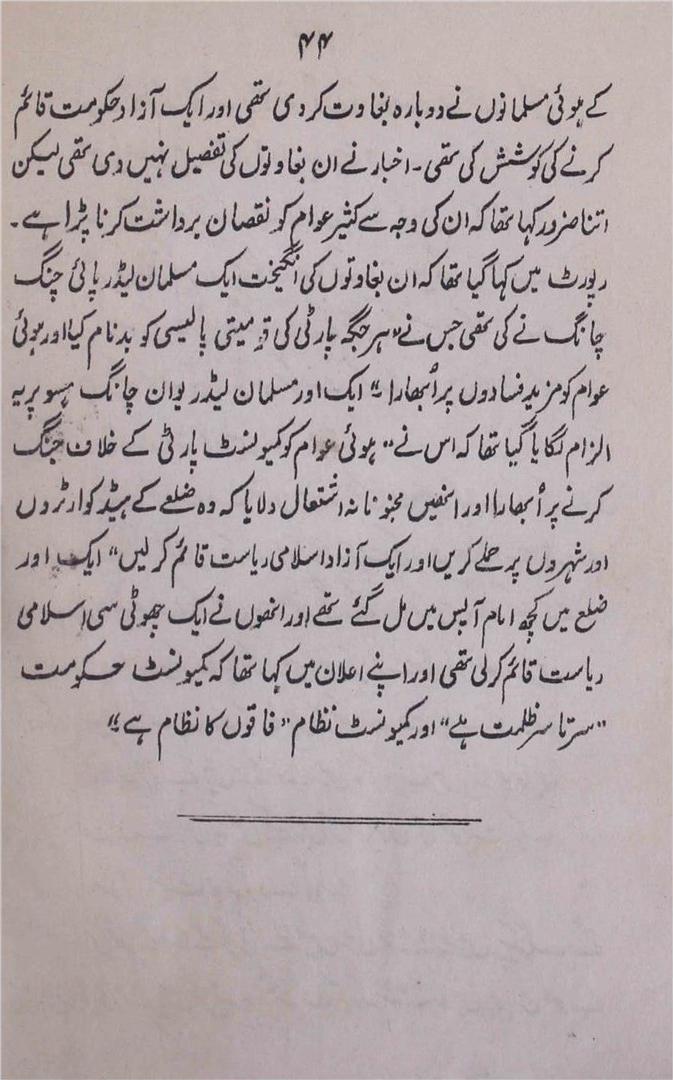 ۴۴
کے ہوئی مسلمانوں نے دوبارہ بغاوت کر دی تھی اور ایک آزاد حکومت قائم
کرنے کی کوشش کی تھی۔ اخبار نے ان بغاوتوں کی تفصیل نہیں دی تھی لیکن
اتنا ضرور کہا تھا کہ ان کی وجہ سے کثیر عوام کو نقصان برداشت کرنا پڑا ہے۔
رپورٹ میں کہا گیا تھا کہ ان بغاوتوں کی انگیخت ایک مسلمان لیڈر پائی چنگ
چانگ نے کی تھی جس نے "ہر جگہ پارٹی کی قومیتی پالیسی کو بدنام کیا اور ہوئی
عوام کو مزید فسادوں پر اُبھارا۔" ایک اور مسلمان لیڈر یوان چانگ ہسو پر یہ
الزام لگایا گیا تھا کہ اس نے "ہوئی عوام کو کمیونسٹ پارٹی کے خلاف جنگ
کرنے پر اُبھارا اور انھیں مجنونانہ اشتعال دلایا کہ وہ ضلعے کے ہیڈ کوارٹروں
اور شہروں پر حملے کریں اور ایک آزاد اسلامی ریاست قائم کر لیں" ایک اور
ضلع میں کچھ امام آپس میں مل گئے تھے اور انھوں نے ایک چھوٹی سی اسلامی
ریاست قائم کرلی تھی اور اپنے اعلان میں کہا تھا کہ کمیونسٹ حکومت
"سرتا سر ظلمت ہے" اور کمیونسٹ نظام "فاقوں کا نظام ہے۔"